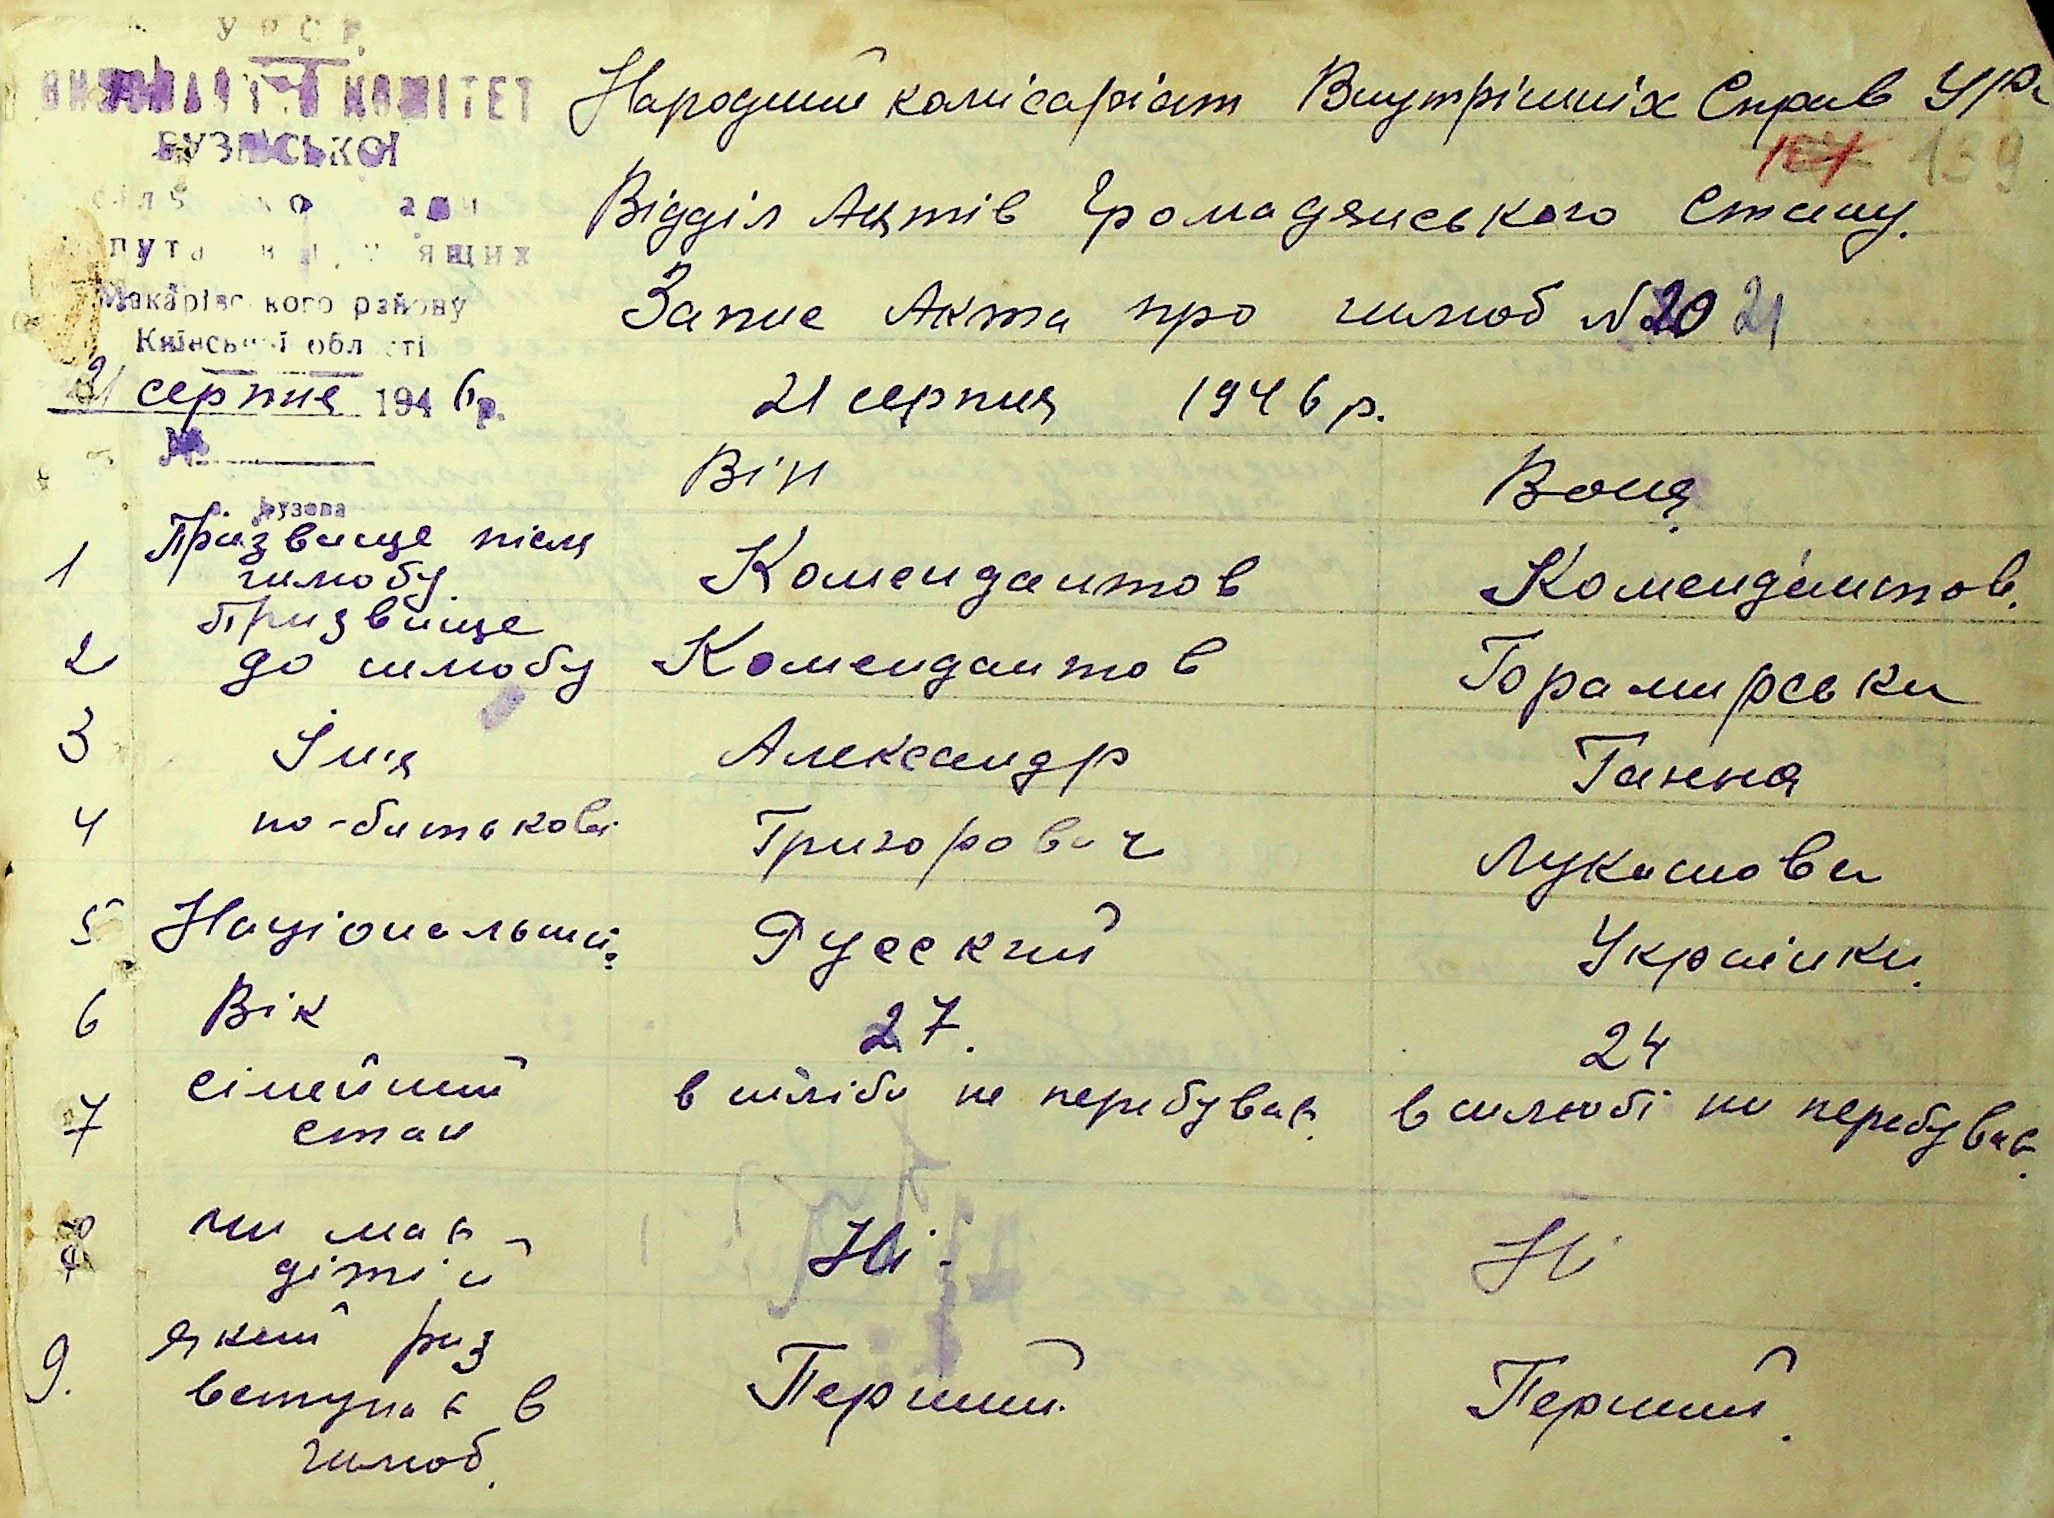 УРСР
ВИКОНАВЧИЙ КОМІТЕТ
БУЗІВСЬКОЇ
Макарівського району
Київської області
21 серпня 1946р.
№
с. Бузова
Народний комісаріат Внутрішніх Справ УРСР
139
Відділ Актів Громадянського Стану.
Запис Акта про шлюб № 20 21
21 серпня 1946 р.
Він Вона
1 Призвище після шлюбу Комендантов Комендантов.
2 Призвище до шлюбу Комендантов Горамирська
3 Імя Александр Ганна
4 по-батькові Григорович Лукашова
5 Національність Русский Українка.
6 Вік 27. 24
7 сімейний стан в шлібі не перебував. в шлюбі не перебував.
8 чи має дітей Ні Ні
9. який раз вступає в шлюб. Перший. Перший.